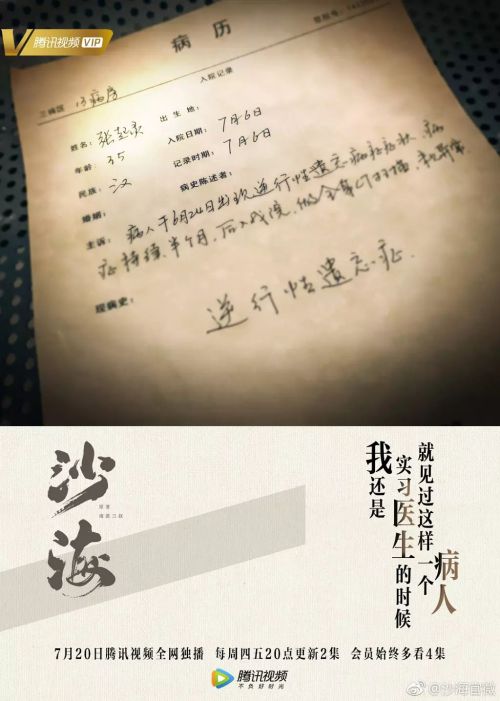 腾讯视频 VIP
病历
入院记录
姓名：张起灵 出生地：
年龄：35 入院日期：7月6日
民族：汉 记录时期：7月6日
婚姻： 病史陈述者：
主诉：病人于6月24日出现逆行性遗忘
症持续半个月，后入我院，做全身CT扫描，
现病史：
逆行性遗忘症
沙海
原著
南派三叔
我还是
实习医生的时候
就见过这样一个
病人
7月20日腾讯视频全网独播 每周四五20点更新2集 会员始终多看4集
腾讯视频
不负好时光
@沙海官微